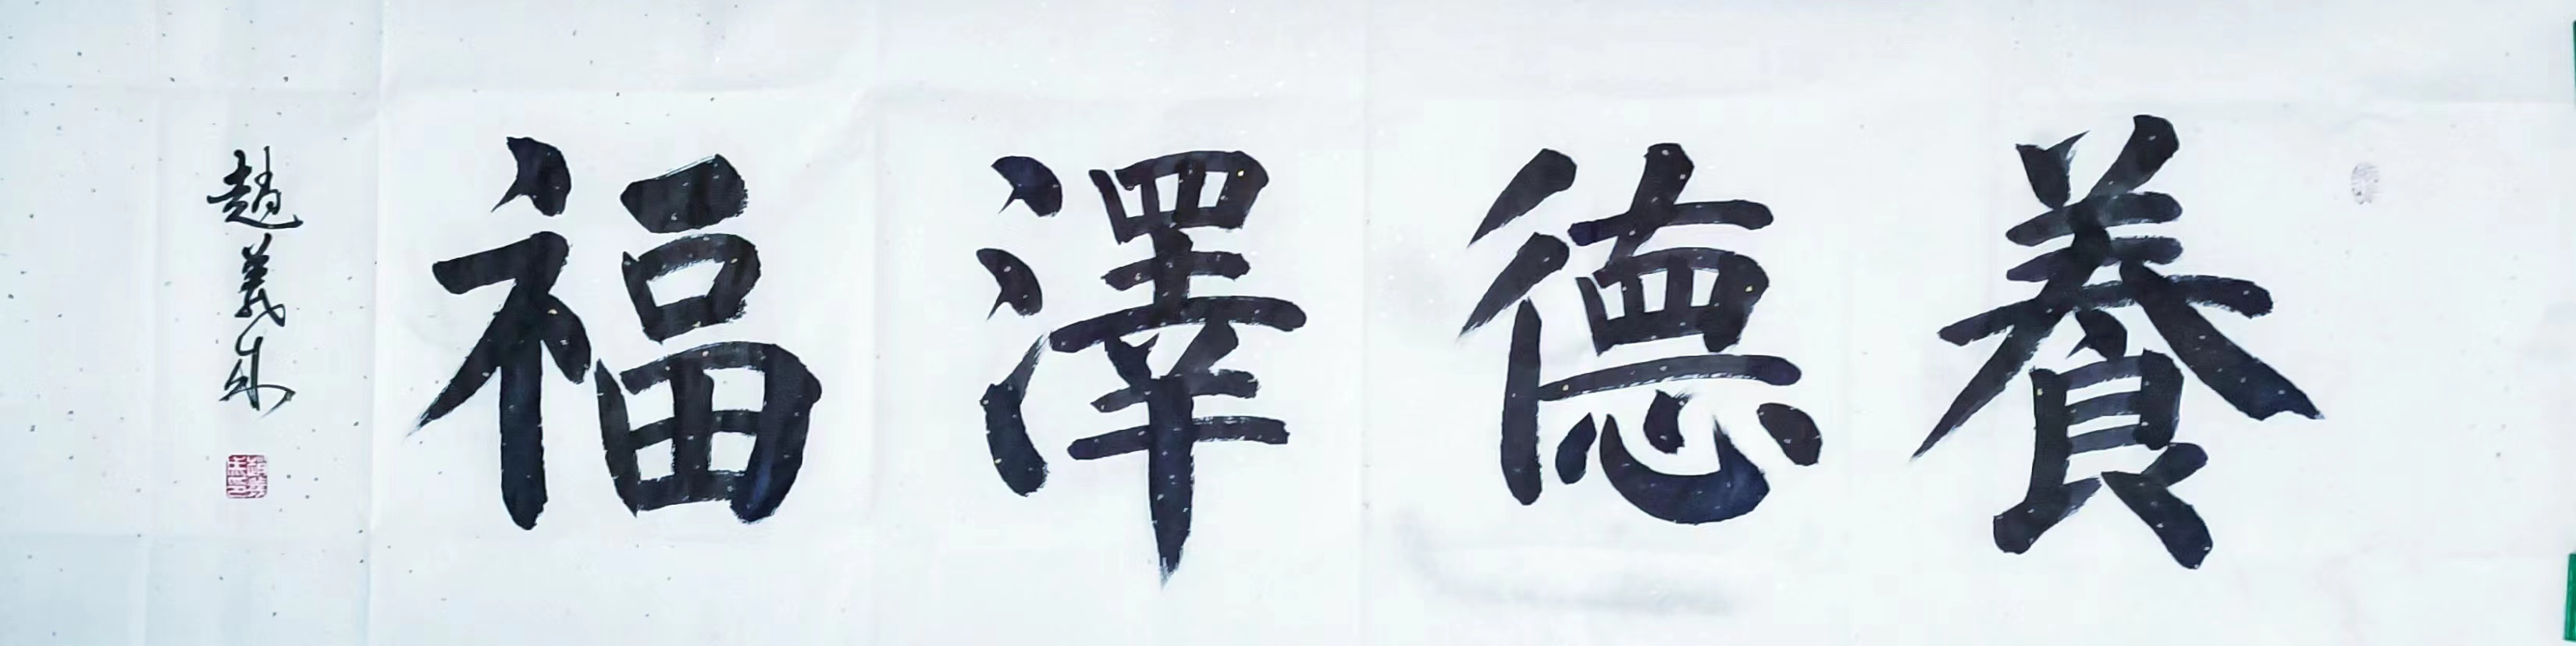 養德澤福
趙義朱